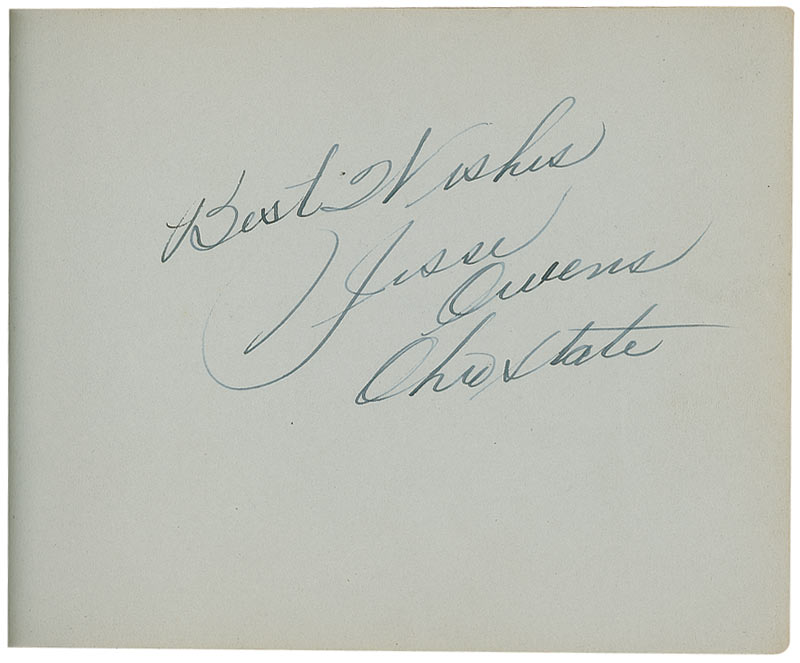 Best Wishes
Jesse
Owens
Ohio State